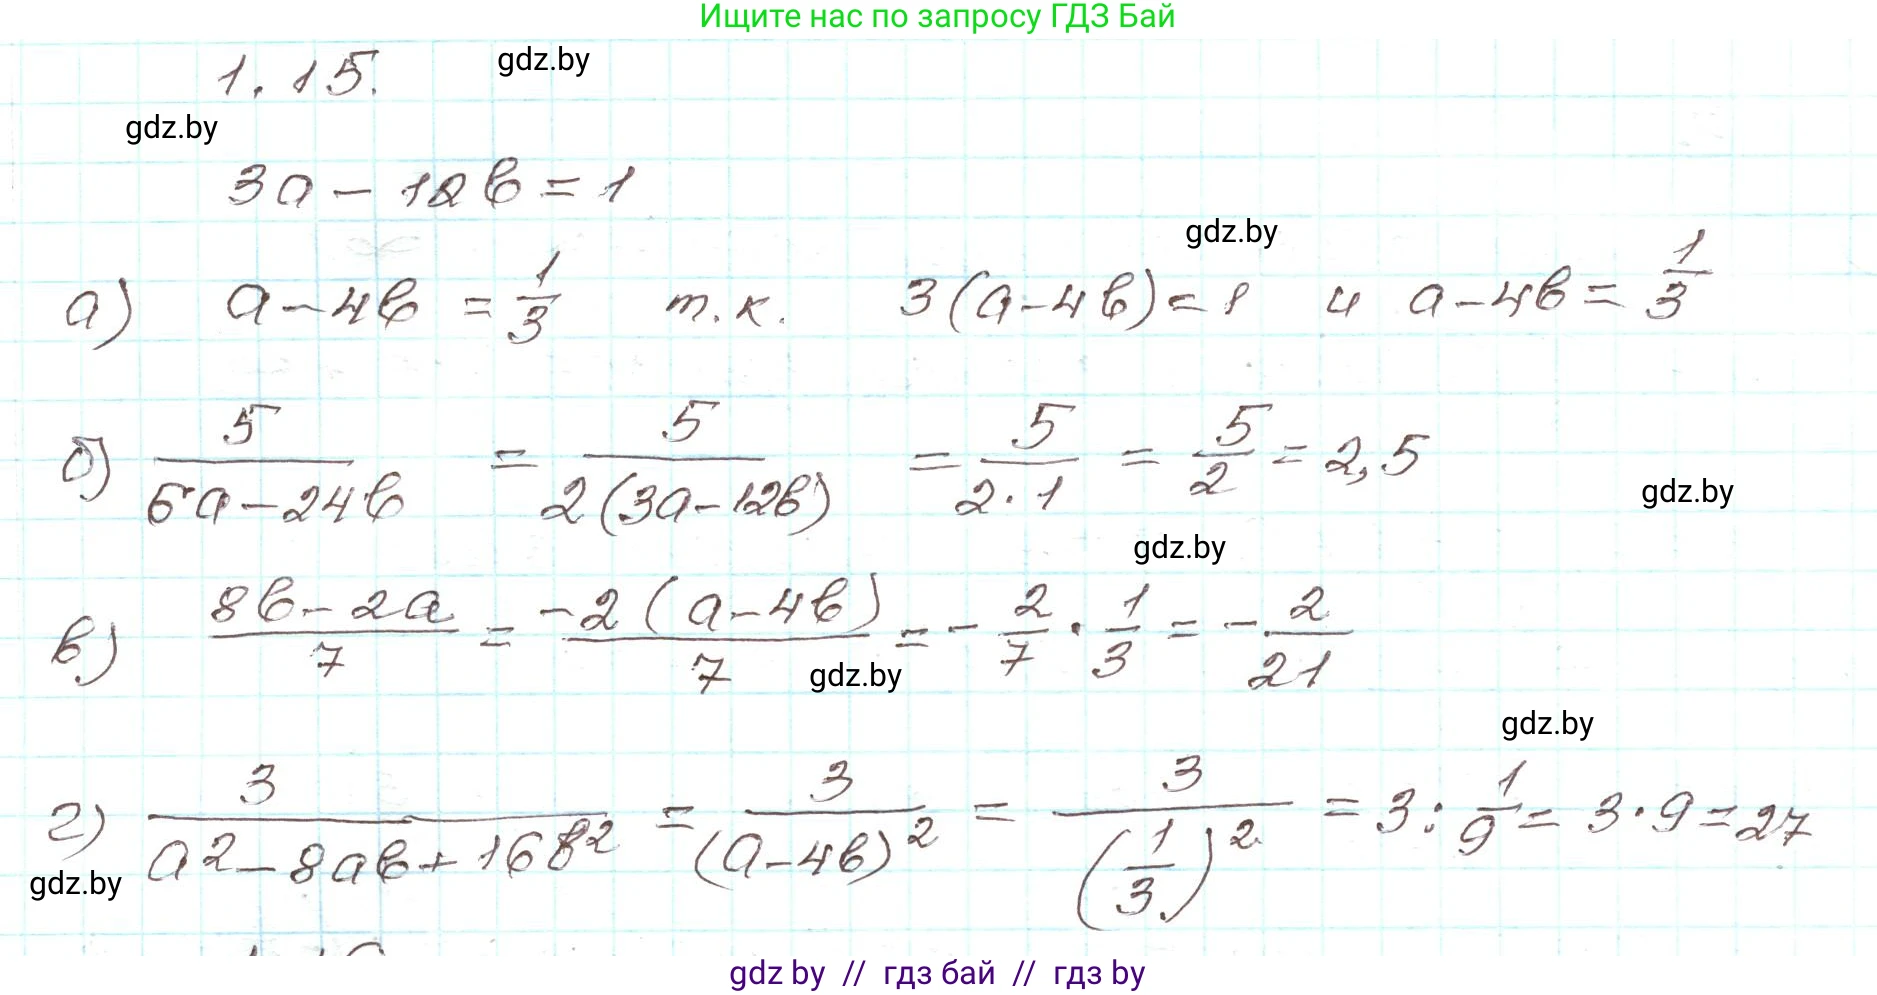 Ищите нас по запросу ГДЗ Бай
1.15.
gdz.by
gdz.by
3a - 12b = 1
gdz.by
а) a - 4b = 1/3 т.к. 3(a - 4b) = 1 и a - 4b = 1/3
б) 5/(6a - 24b) = 5/(2(3a - 12b)) = 5/(2·1) = 5/2 = 2,5
gdz.by
gdz.by
в) (8b - 2a)/7 = (-2(a - 4b))/7 = - 2/7 · 1/3 = - 2/21
gdz.by
gdz.by
г) 3/(a² - 8ab + 16b²) = 3/(a - 4b)² = 3/(1/3)² = 3 : 1/9 = 3·9 = 27
gdz.by
gdz by // гдз бай // гдз by